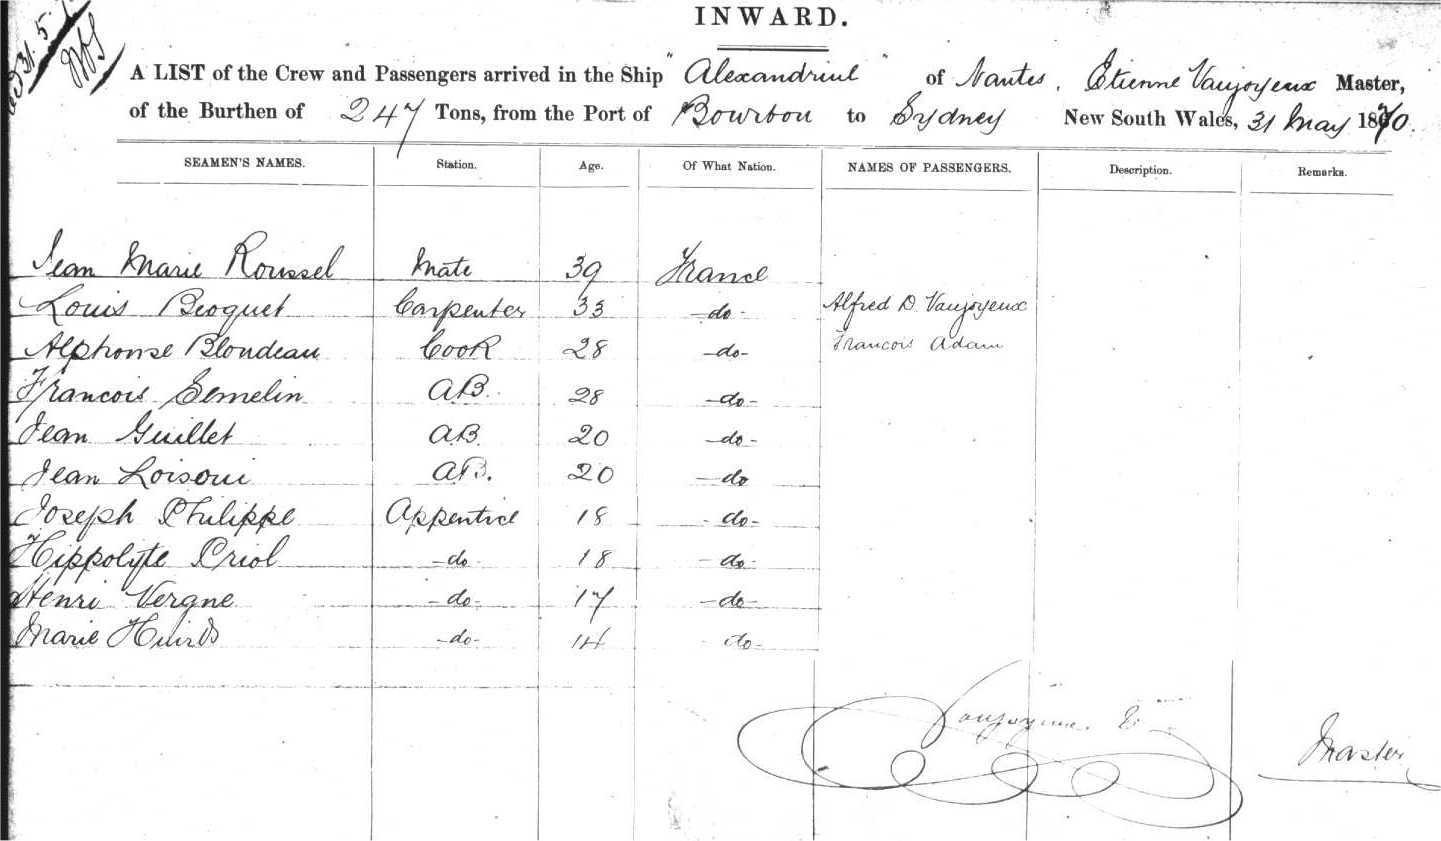 31.5.
INWARD.
A LIST of the Crew and Passengers arrived in the Ship "Alexandrine" of Nantes, Etienne Vaujoyeux Master,
of the Burthen of 247 Tons, from the Port of Bourbon to Sydney New South Wales, 31 May 1870.
SEAMEN'S NAMES. Station. Age. Of What Nation. NAMES OF PASSENGERS. Description. Remarks.
Jean Marie Roussel Mate 39 France
Louis Bioquet Carpenter 33 -do- Alfred D. Vaujoyeux
Alphonse Blondeau Cook 28 -do- Francois Adam
Francois Semelin AB. 28 -do-
Jean Guillet AB. 20 -do-
Jean Loisoui AB. 20 -do
Joseph Philippe Appentice 18 -do-
Hippolyte Priol -do 18 -do-
Henri Vergne -do- 17 -do-
Marie -do- 14 do-
Vaujoyeux. E
Master